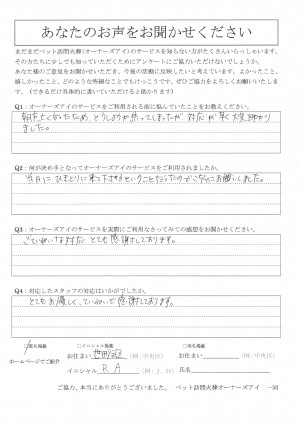 あなたのお声をお聞かせください
まだまだペット訪問火葬(オーナーズアイ)のサービスを知らない方がたくさんいらっしゃいます。
その方たちに少しでも知っていただくためにアンケートにご協力いただけないでしょうか。
あなた様のご意見をお聞かせいただき、今後の活動に反映したいと考えています。よかったこと、
嬉しかったこと、どのような些細なことでもけっこうです。ぜひご協力をよろしくお願いいたします。
(できるだけ具体的に書いていただけると助かります。)
Q1:オーナーズアイのサービスをご利用される前に悩んでいたことをお教えください。
朝、亡くなったため、どうしようか焦ってしまったが、対応が早く大変助かり
ました。
Q2:何が決め手となってオーナーズアイのサービスをご利用されましたか。
当日にひきとりに来て下さるということだったのでお願いしました。
Q3:オーナーズアイのサービスを実際にご利用なさってみての感想をお聞かせください。
ていねいな対応、とても感謝しております。
Q4:対応したスタッフの対応はいかがでしたか。
とてもお優しく、ていねいで感謝しております。
□実名掲載 □イニシャル掲載 □匿名掲載
ホームページでご紹介 お住まい 世田谷区 (例:中央区) お住まい (例:中央区)
イニシャル R A (例:J.H) 氏名
ご協力、本当にありがとうございました。 ペット訪問火葬オーナーズアイ 一同